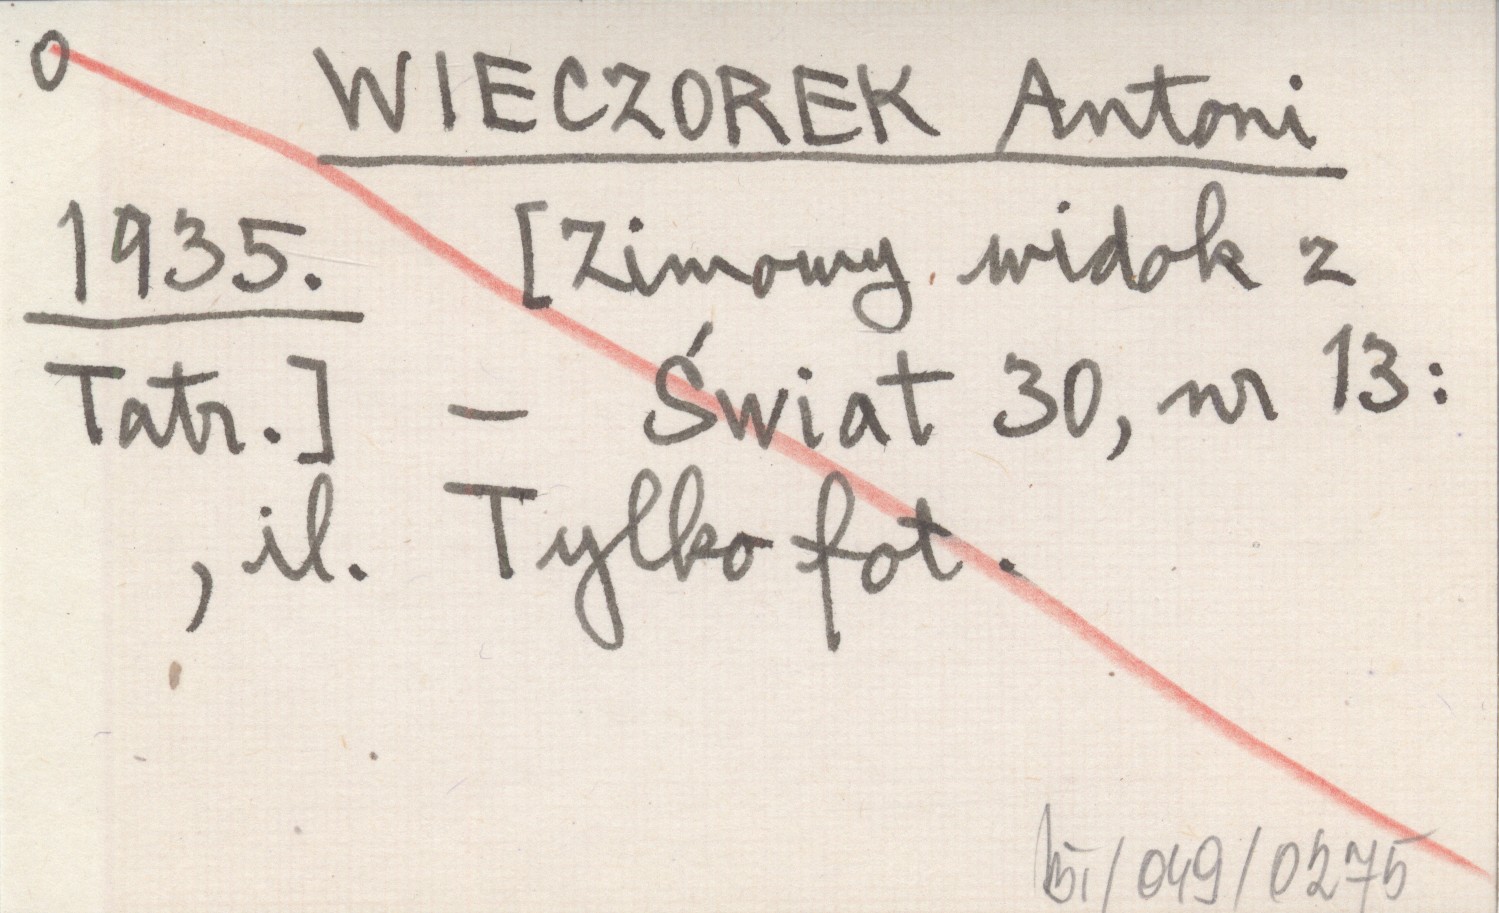 0 WIECZOREK Antoni
1935. [Zimowy widok z
Tatr.] - Świat 30, nr 13:
, il. Tylko fot.
/049/0275